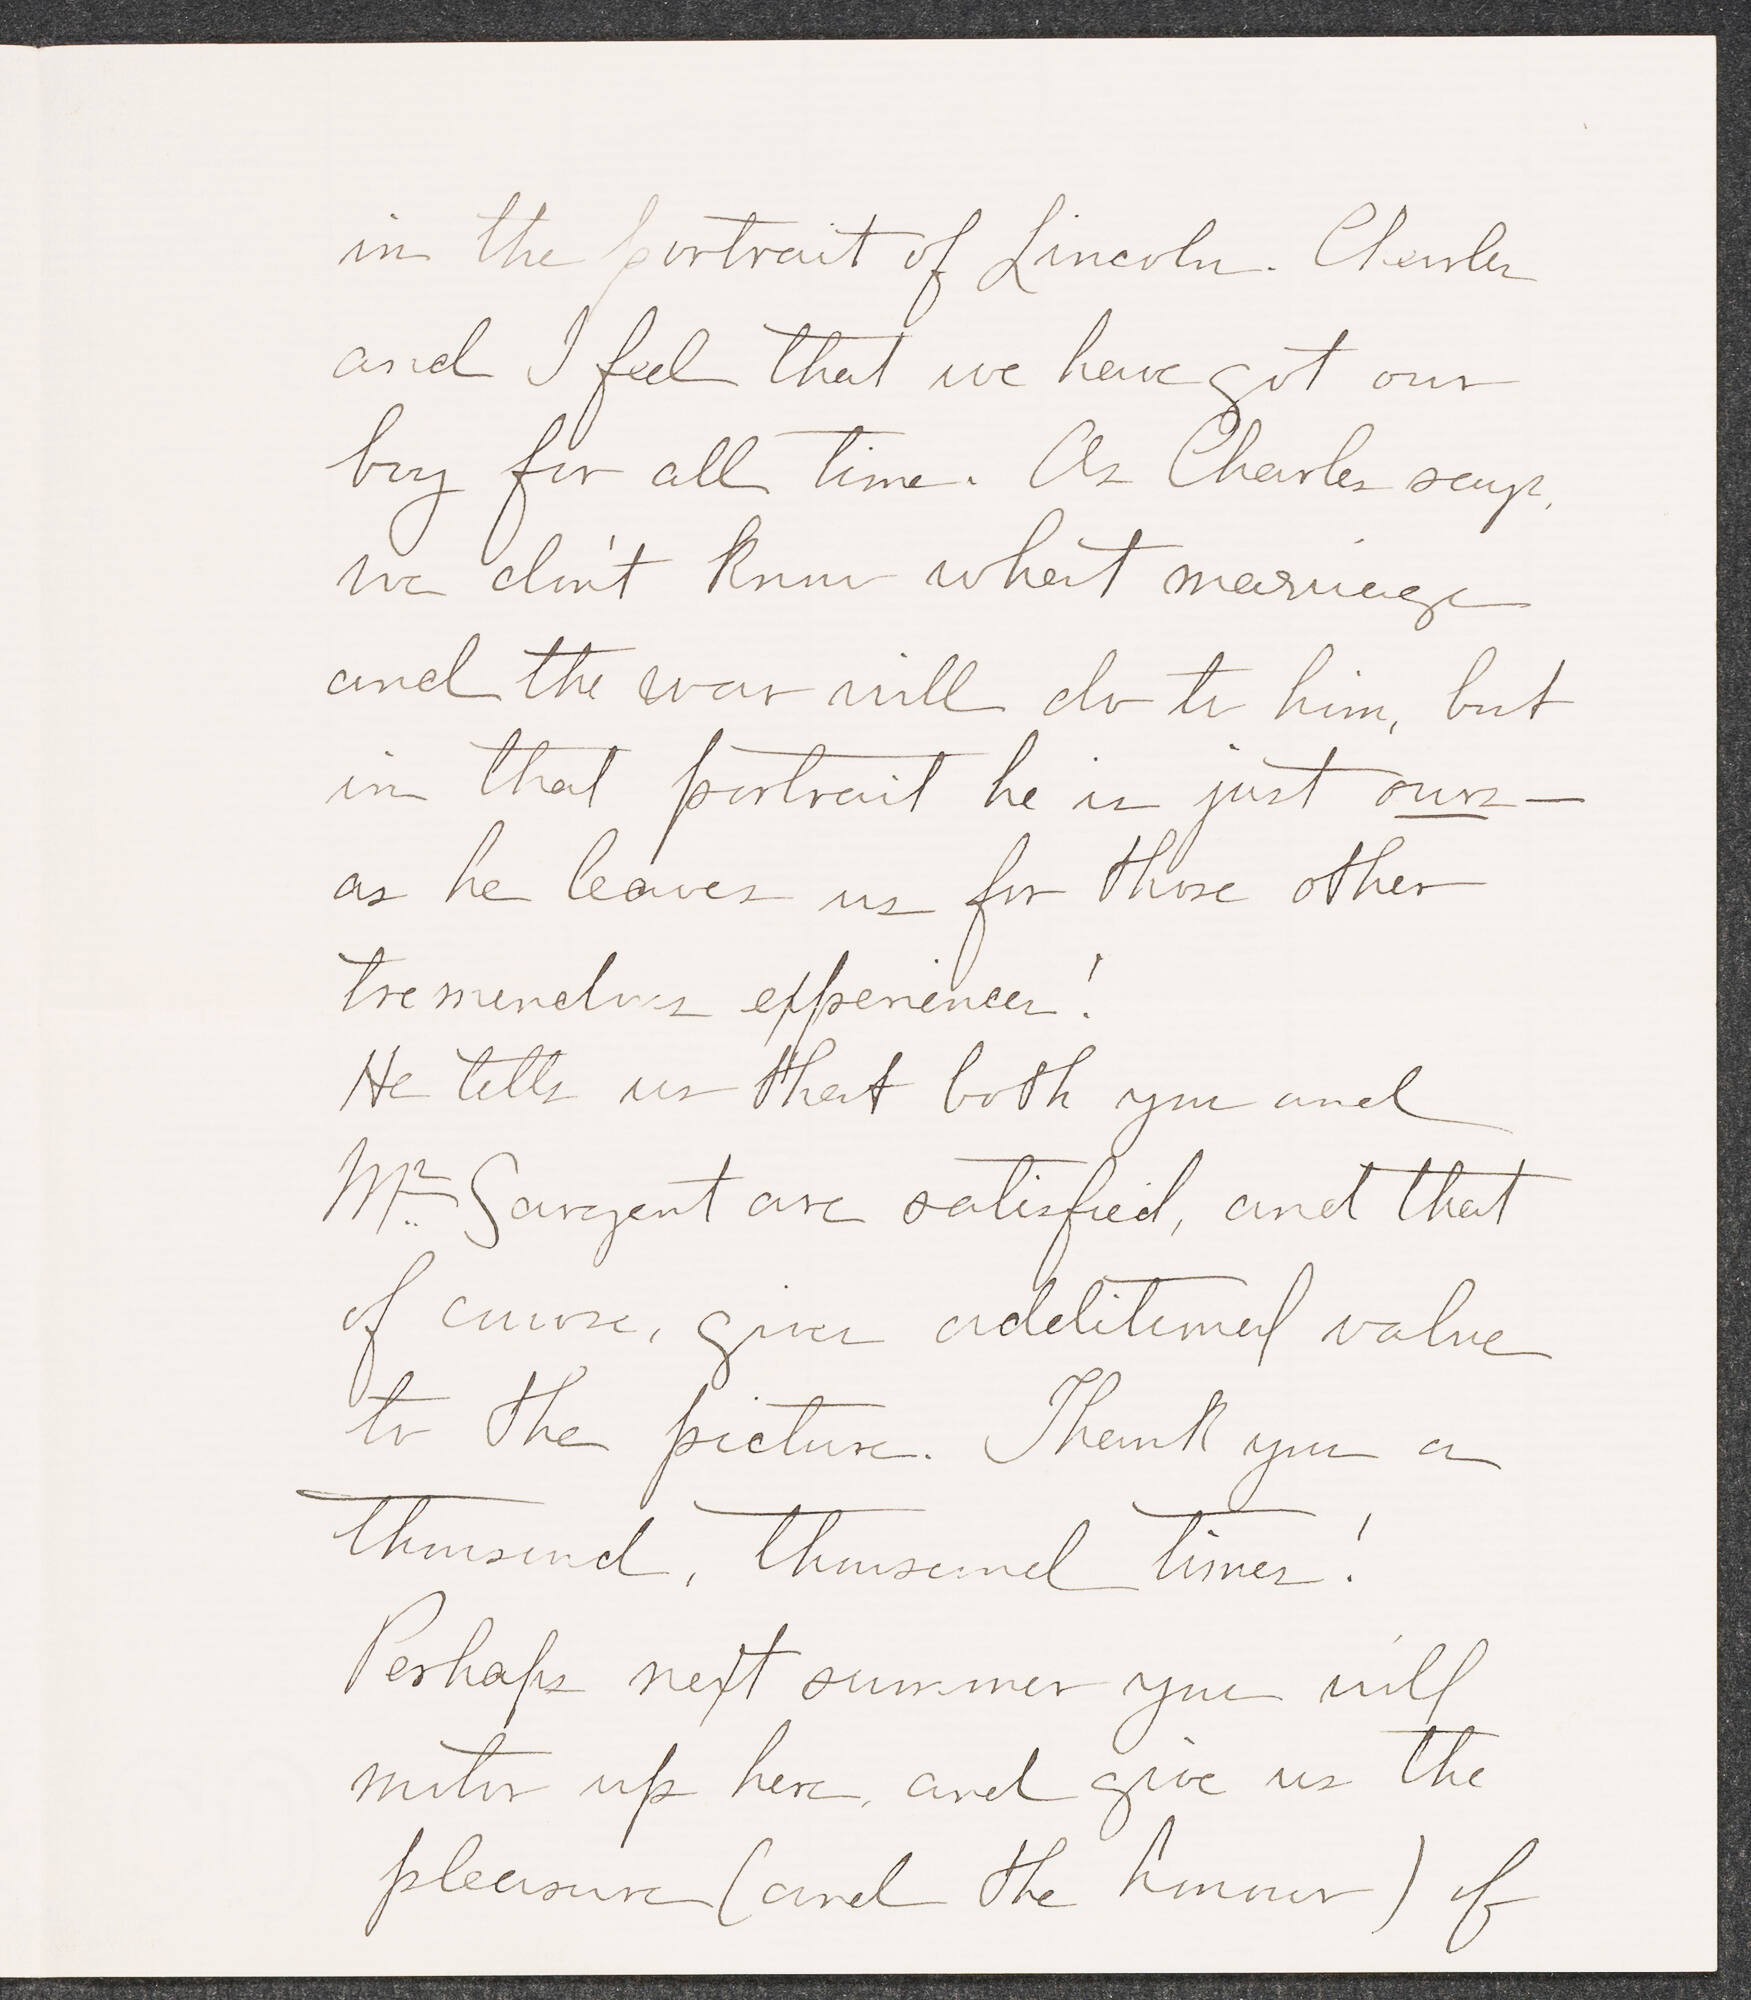 in the portrait of Lincoln. Charles
and I feel that we have got our
boy for all time. As Charles says,
we don't know what marriage
and the war will do to him, but
in that portrait he is just ours—
as he leaves us for those other
tremendous experiences!
He tells us that both you and
Mr. Sargent are satisfied, and that
of course, gives additional value
to the picture. Thank you a
thousand, thousand times!
Perhaps next summer you will
motor up here, and give us the
pleasure (and the honour) of